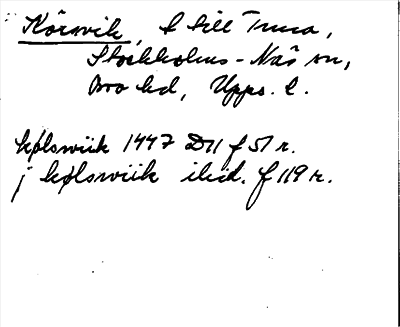 Körsvik, t till Truva,
Stockholms-Näs sn,
Bro hd, Upps. l.
kølswiik 1447 D11 f 51 r.
j kølswiik ibid. f 119 r.